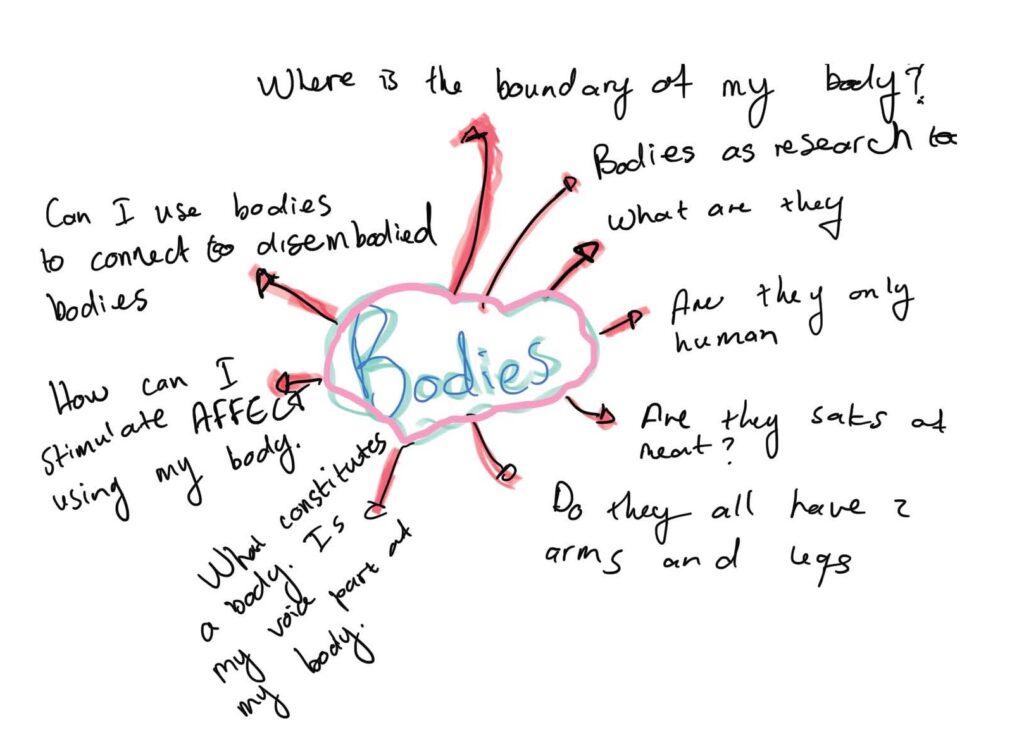 Where is the boundary of my body?
Bodies as research to
What are they
Are they only
human
Are they saks of
meat?
Do they all have 2
arms and legs
What constitutes
a body. Is
my voice part of
my body.
How can I
stimulate AFFECT
using my body.
Can I use bodies
to connect to disembodied
bodies
Bodies